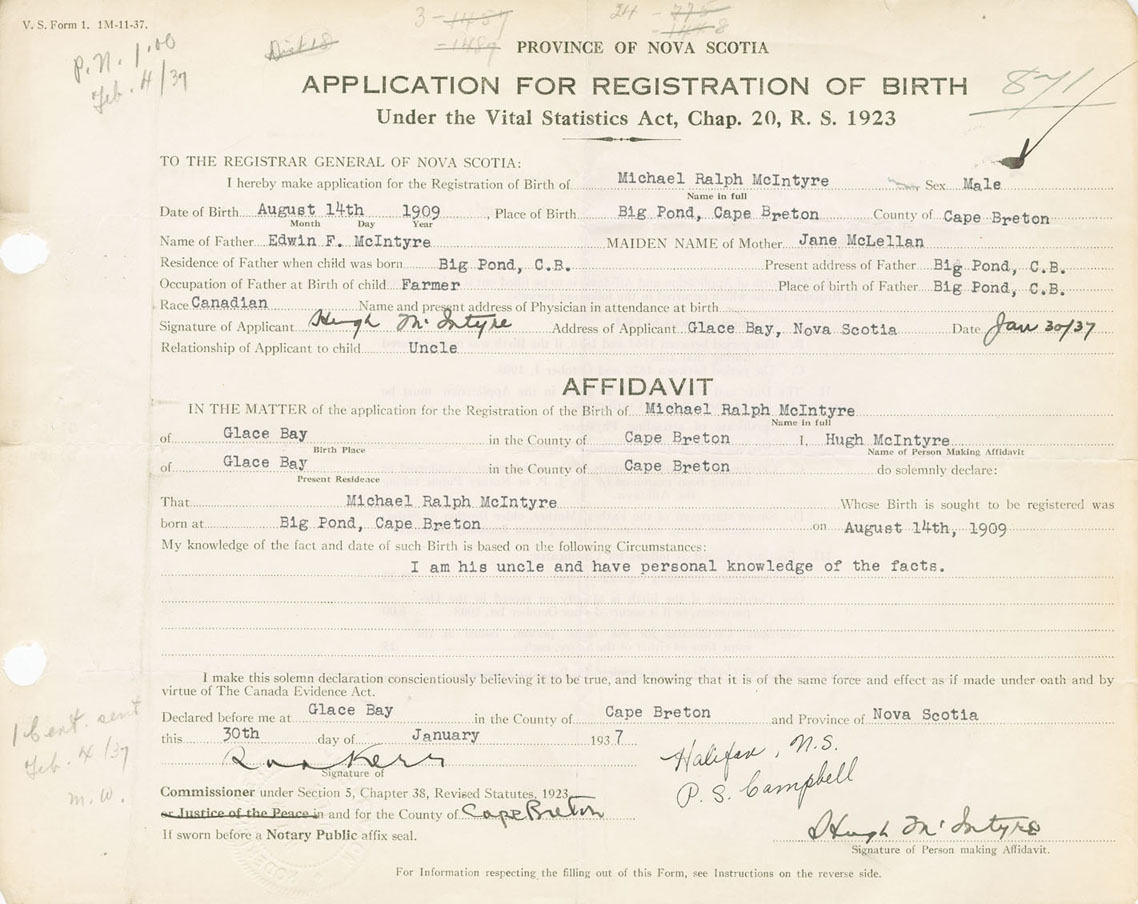 V. S. Form 1. 1M-11-37.
3 - 1487 24 - 775
- 1489 - 1448
Dist 18
P.N. 1.00
Feb. 4/37
871
PROVINCE OF NOVA SCOTIA
APPLICATION FOR REGISTRATION OF BIRTH
Under the Vital Statistics Act, Chap. 20, R. S. 1923
TO THE REGISTRAR GENERAL OF NOVA SCOTIA:
I hereby make application for the Registration of Birth of Michael Ralph McIntyre Sex Male
Name in full
Date of Birth August 14th 1909, Place of Birth Big Pond, Cape Breton County of Cape Breton
Month Day Year
Name of Father Edwin F. McIntyre MAIDEN NAME of Mother Jane McLellan
Residence of Father when child was born Big Pond, C.B. Present address of Father Big Pond, C.B.
Occupation of Father at Birth of child Farmer Place of birth of Father Big Pond, C.B.
Race Canadian Name and present address of Physician in attendance at birth
Signature of Applicant Hugh McIntyre Address of Applicant Glace Bay, Nova Scotia Date Jan 30/37
Relationship of Applicant to child Uncle
AFFIDAVIT
IN THE MATTER of the application for the Registration of the Birth of Michael Ralph McIntyre
Name in full
of Glace Bay in the County of Cape Breton I, Hugh McIntyre
Birth Place Name of Person Making Affidavit
of Glace Bay in the County of Cape Breton do solemnly declare:
Present Residence
That Michael Ralph McIntyre Whose Birth is sought to be registered was
born at Big Pond, Cape Breton on August 14th, 1909
My knowledge of the fact and date of such Birth is based on the following Circumstances:
I am his uncle and have personal knowledge of the facts.
I make this solemn declaration conscientiously believing it to be true, and knowing that it is of the same force and effect as if made under oath and by
virtue of The Canada Evidence Act.
Declared before me at Glace Bay in the County of Cape Breton and Province of Nova Scotia
this 30th day of January 1937
Signature of
Halifax, N.S.
P. S. Campbell
1 Cert. sent
Feb. 4/37
m.w.
Commissioner under Section 5, Chapter 38, Revised Statutes, 1923
or Justice of the Peace in and for the County of Cape Breton
If sworn before a Notary Public affix seal.
Hugh McIntyre
Signature of Person making Affidavit.
For Information respecting the filling out of this Form, see Instructions on the reverse side.